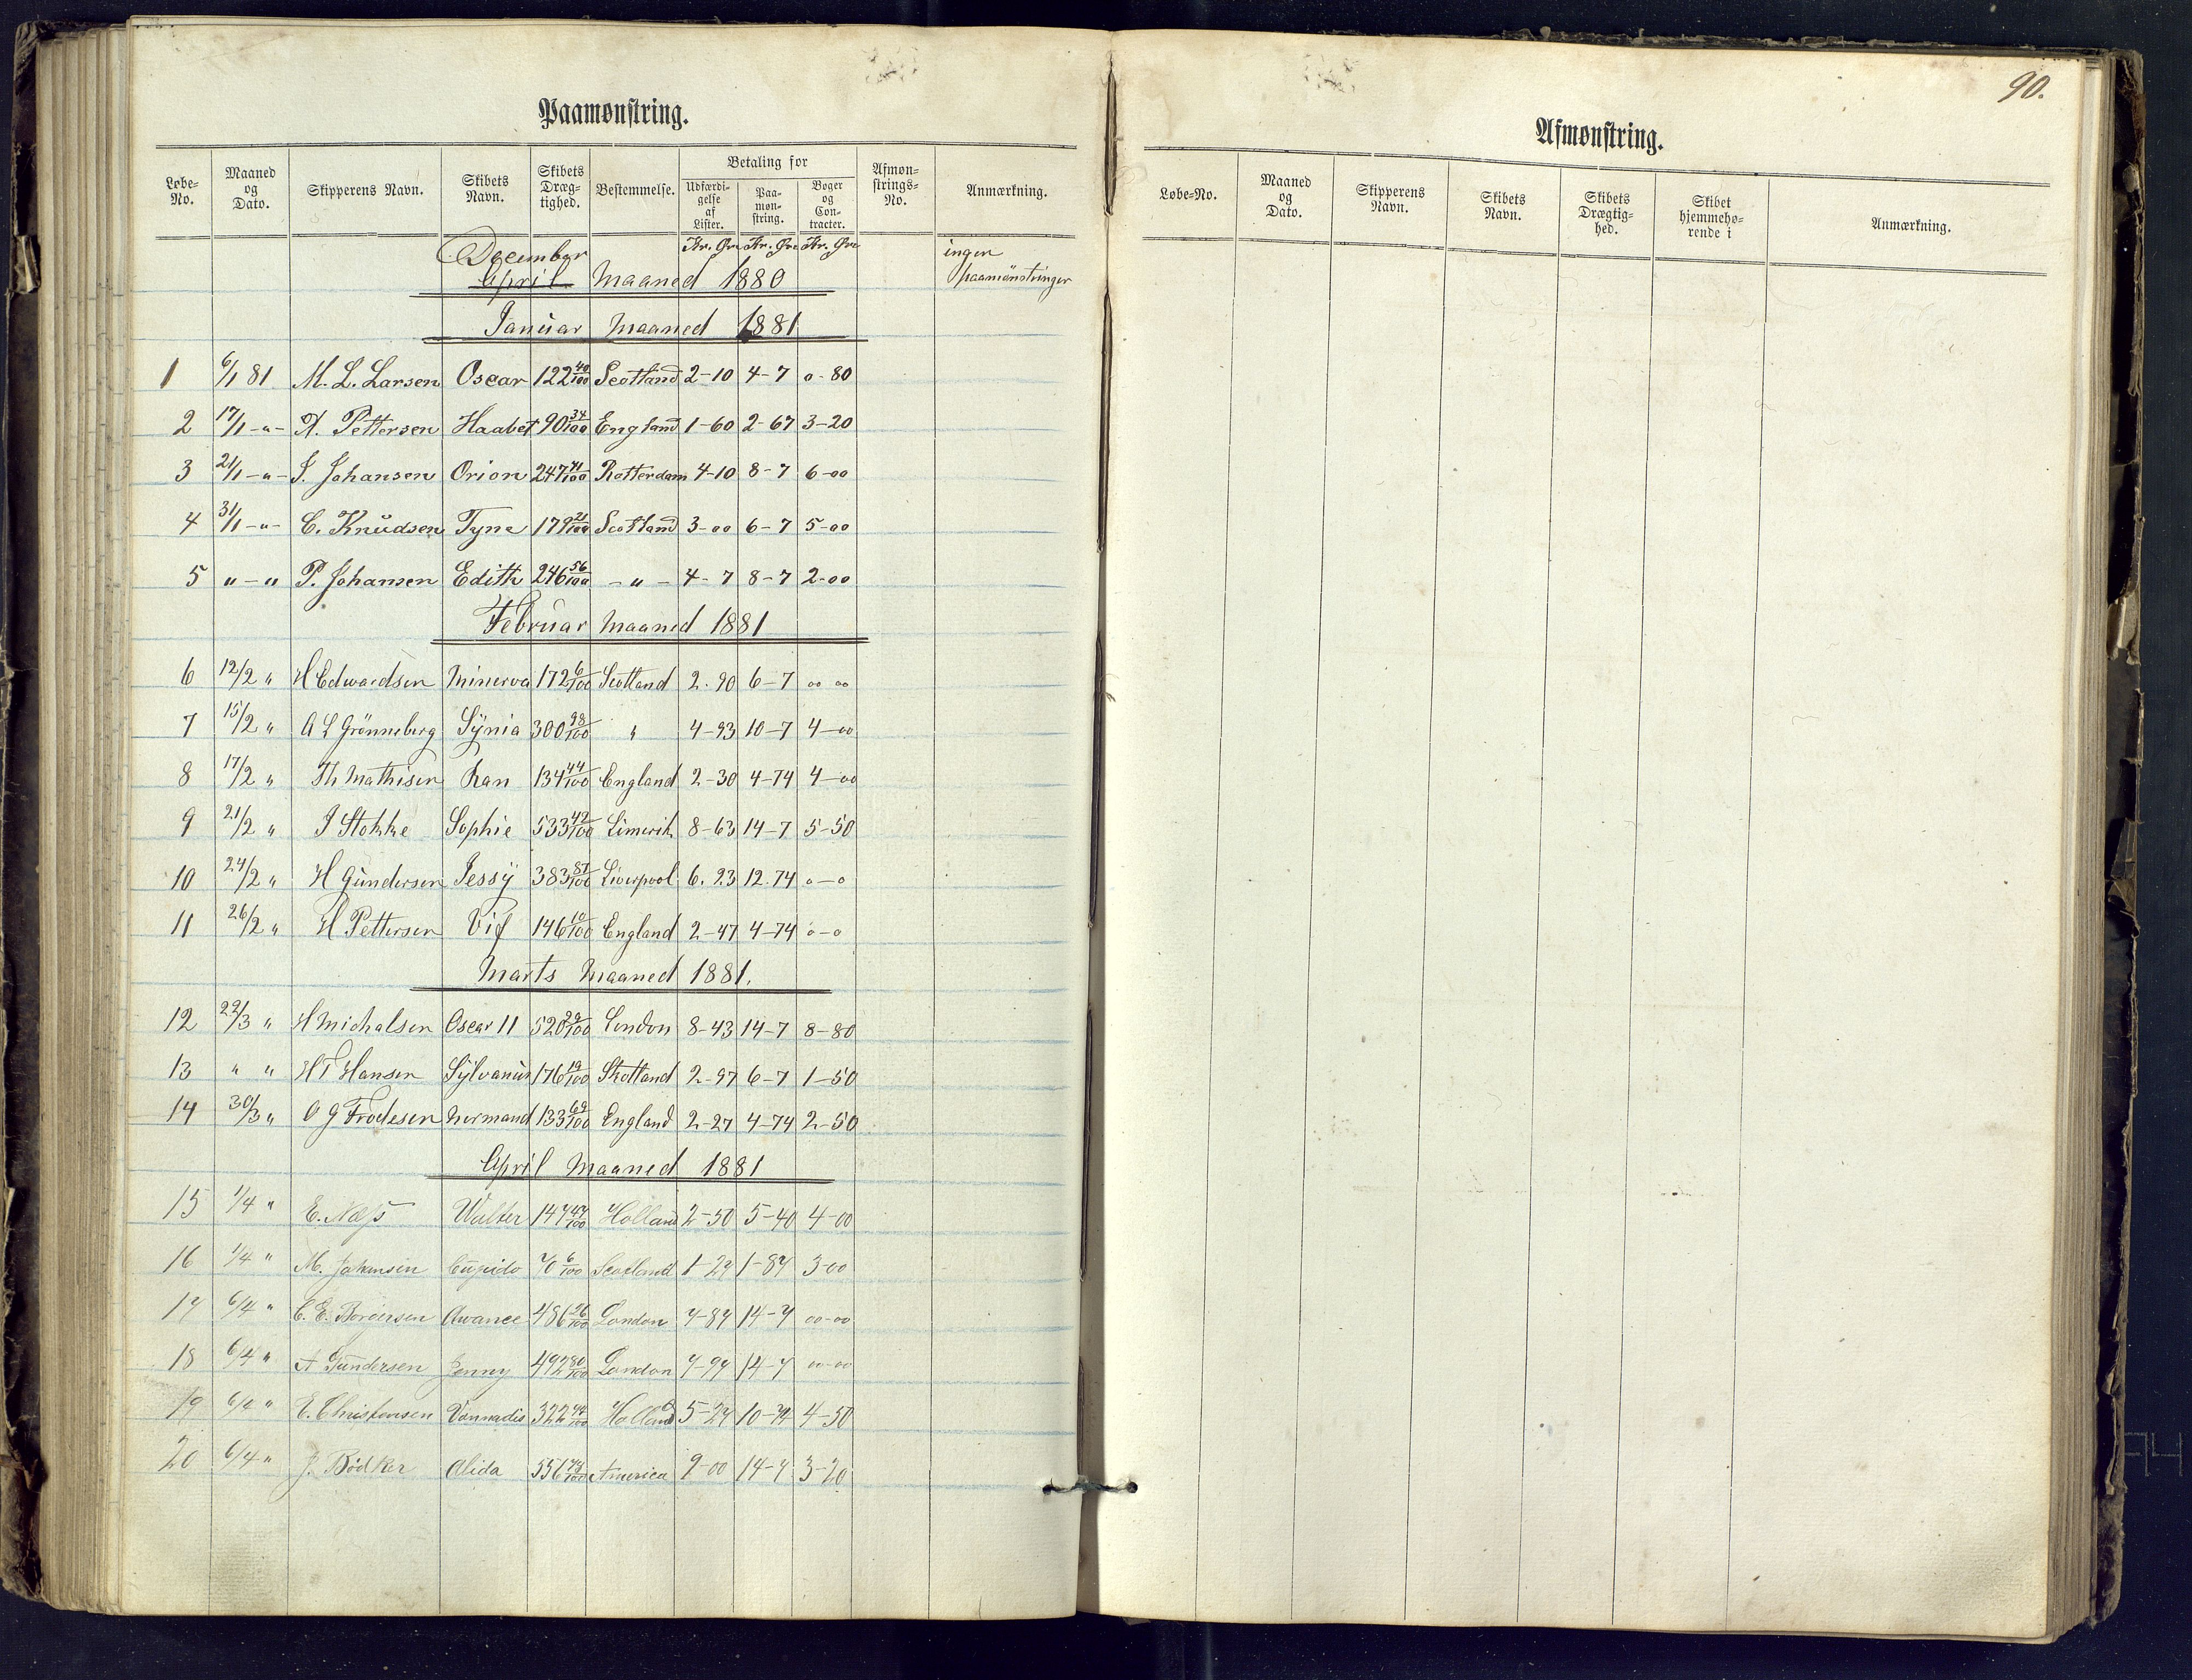 90.
Paamønstring.
Løbe-No. Maaned og Dato. Skipperens Navn. Skibets Navn. Skibets Dræg-tighed. Bestemmelse. Betaling for Udfærdi-gelse af Lister. Paa-møn-string. Bøger og Con-tracter. Afmøn-strings-No. Anmærkning.
Kr. Øre Kr. Øre Kr. Øre
December April Maaned 1880 ingen paamönstringer
Januar Maaned 1881
1 6/1 81 M. L. Larsen Oscar 122 40/100 Scotland 2-10 4-7 0-80
2 17/1 -"- N. Pettersen Haabet 90 34/100 England 1-60 2-67 3-20
3 21/1 -"- J. Johansen Orion 247 41/100 Rotterdam 4-10 8-7 6-00
4 31/1 -"- C. Knudsen Tyne 179 21/100 Scotland 3-00 6-7 5-00
5 "-" P. Johansen Edith 246 56/100 -"- 4-7 8-7 2-00
Februar Maaned 1881
6 12/2 " H Edwardsen Minerva 172 6/100 Scotland 2.90 6-7 00 00
7 15/2 " A L Grönneberg Synia 300 98/100 " 4-93 10-7 4-00
8 17/2 " Th Mathisen Ran 134 44/100 England 2-30 4-74 4-00
9 21/2 " J Stokke Sophie 533 42/100 Limerik 8-63 14-7 5-50
10 24/2 " H Gundersen Jessy 383 87/100 Liverpool 6.23 12.74 0-0
11 26/2 " H Pettersen Vif 146 10/100 England 2-47 4-74 0-0
Marts Maaned 1881.
12 22/3 " H Michalsen Oscar II 520 29/100 London 8-43 14-7 8-80
13 " " H T Hansen Sylvanus 176 19/100 Skotland 2-97 6-7 1-50
14 30/3 " O G Frodesen Normand 133 69/100 England 2-27 4-74 2-50
April Maaned 1881
15 1/4 " E. Næss Walter 147 47/100 Holland 2-50 5-40 4-00
16 1/4 " M. Johansen Cupido 70 6/100 Scotland 1-27 1-87 3-00
17 6/4 " C. E. Avance 486 26/100 London 7-87 14-7 00-00
18 6/4 " A Gundersen Jenny 492 80/100 London 7-97 14-7 00-00
19 6/4 " E. Christensen Vannadis 322 74/100 Holland 5-27 10-74 4-50
20 6/4 " J. Bödker Alida 556 78/100 America 9-00 14-7 3-20
Afmønstring.
Løbe-No. Maaned og Dato. Skipperens Navn. Skibets Navn. Skibets Drægtig-hed. Skibet hjemmehø-rende i Anmærkning.